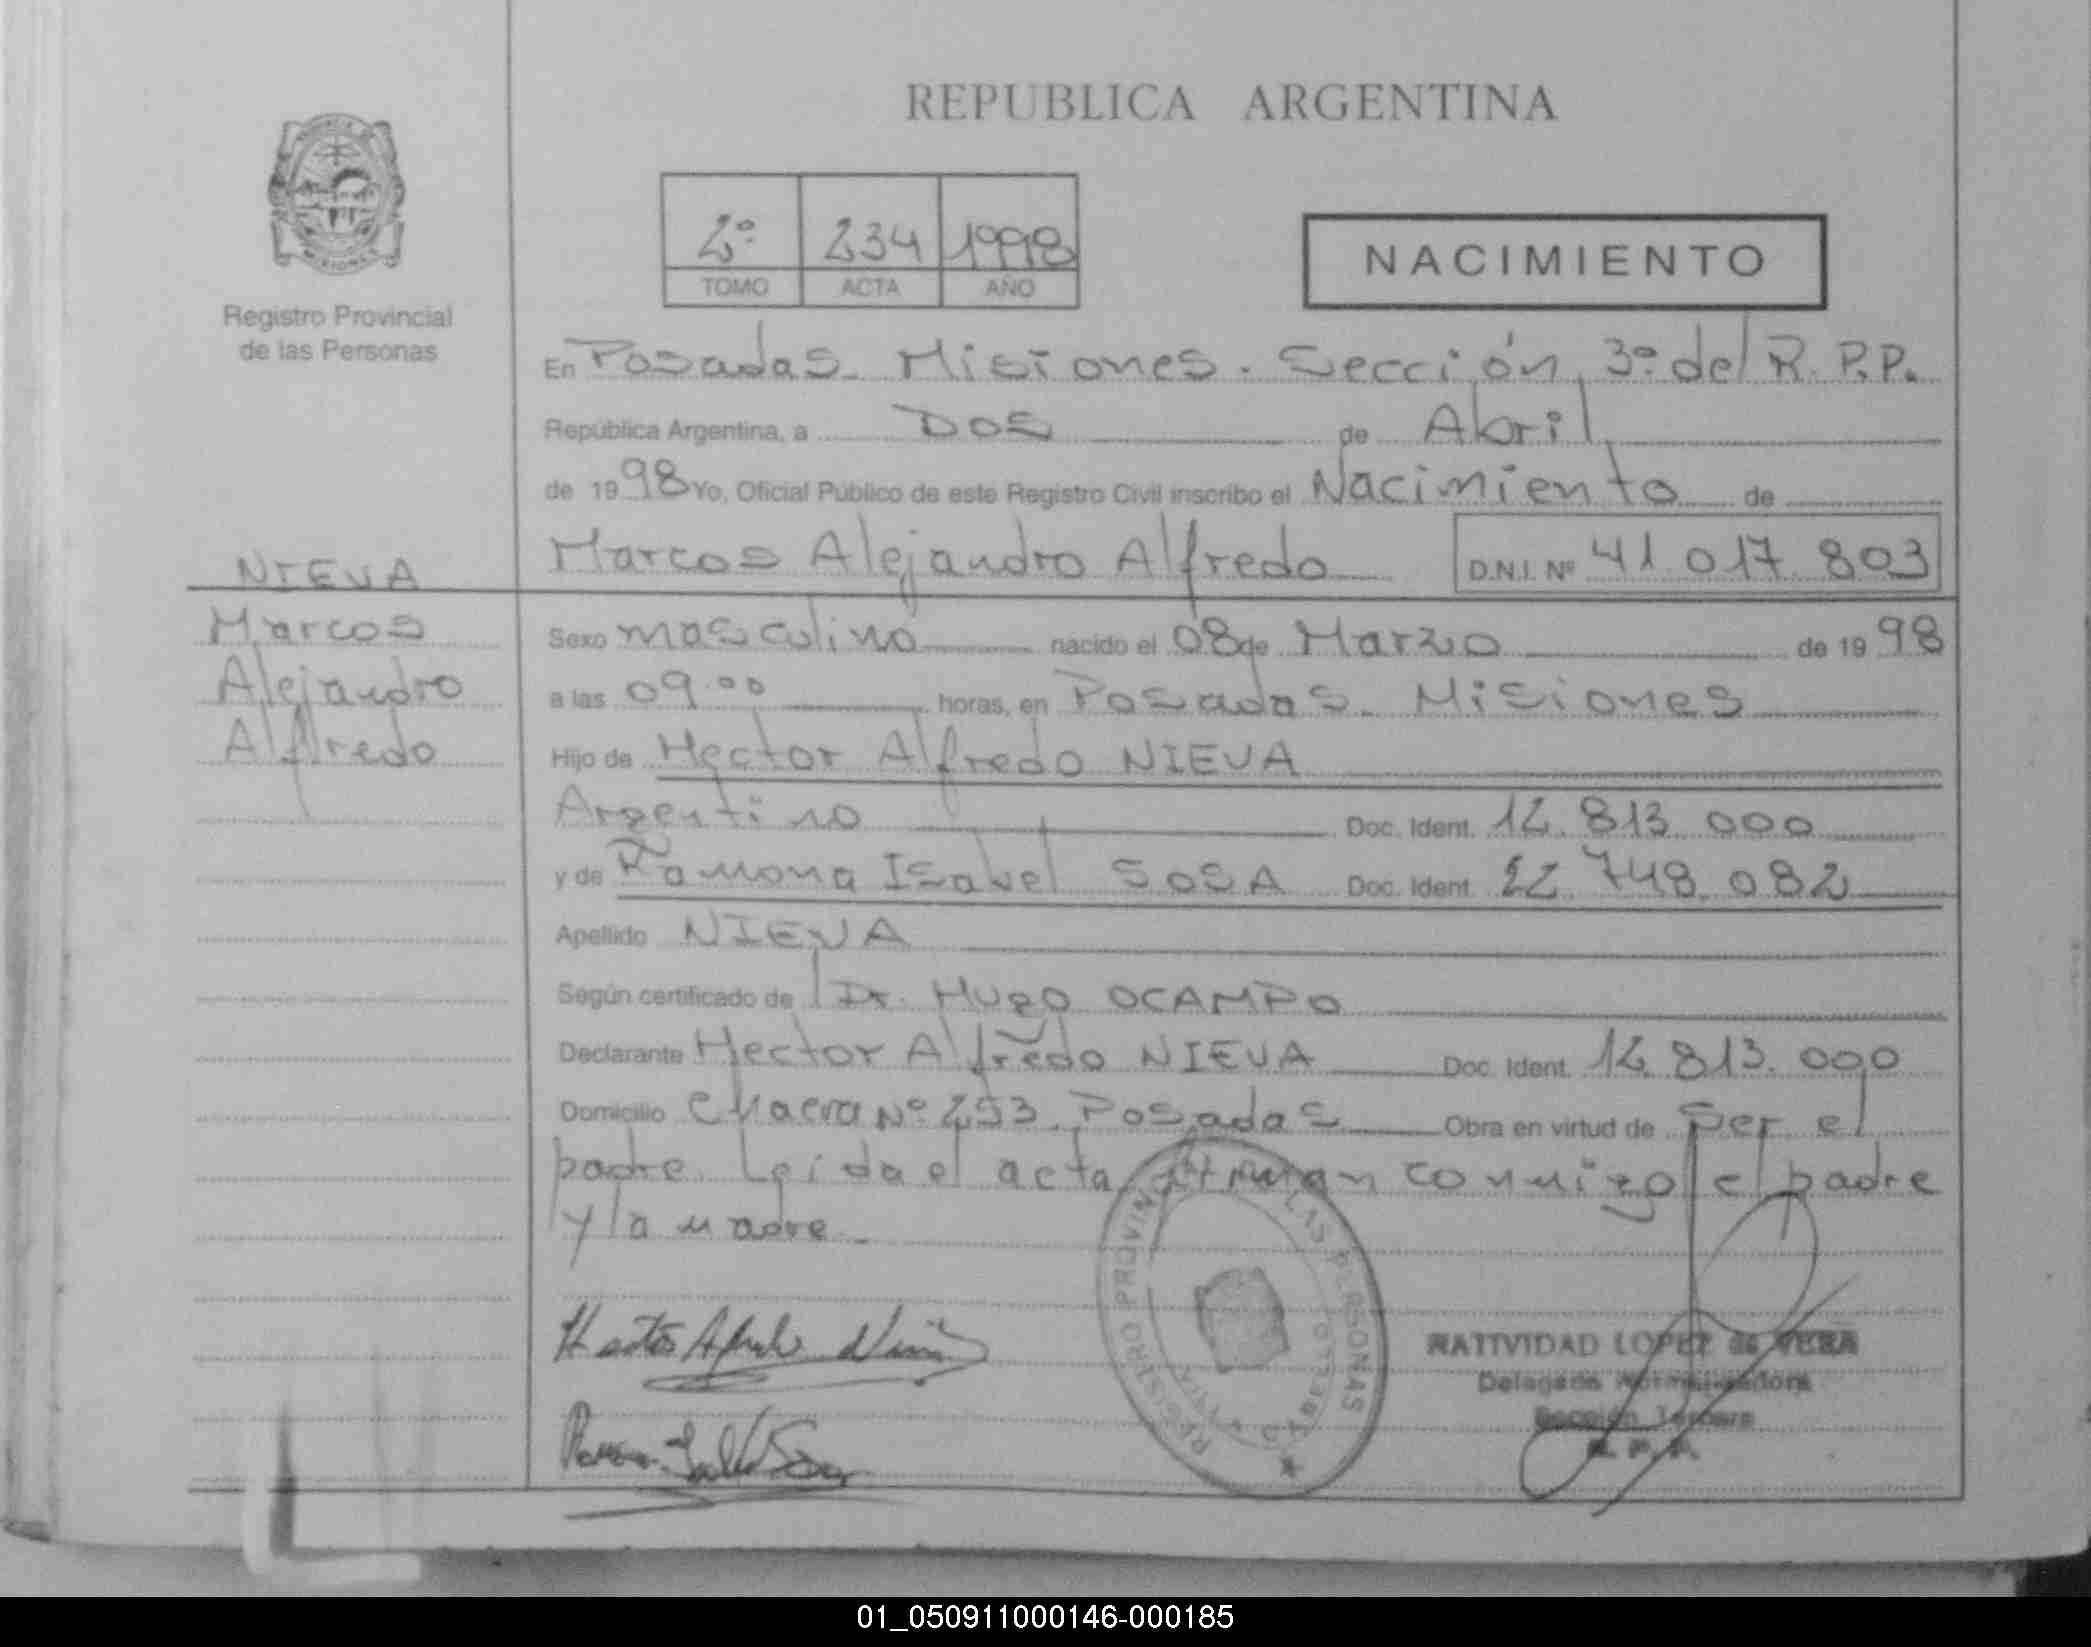 REPUBLICA ARGENTINA
PROVINCIA DE
MISIONES
Registro Provincial
de las Personas
2º 234 1998
TOMO ACTA AÑO
NACIMIENTO
En Posadas - Misiones. Sección 3º del R.P.P.
República Argentina, a Dos de Abril
de 1998 Yo, Oficial Público de este Registro Civil inscribo el Nacimiento de
Marcos Alejandro Alfredo D.N.I. Nº 41.017.803
NIEVA
Marcos
Alejandro
Alfredo
Sexo masculino nacido el 08 de Marzo de 1998
a las 09.00 horas, en Posadas - Misiones
Hijo de Hector Alfredo NIEVA
Argentino Doc. Ident. 12.813.000
y de Ramona Isabel SOSA Doc. Ident. 22.748.082
Apellido NIEVA
Según certificado de Dr. Hugo OCAMPO
Declarante Hector Alfredo NIEVA Doc. Ident. 12.813.000
Domicilio Chacra Nº 253 Posadas Obra en virtud de ser el
padre. Leída el acta firman conmigo el padre
y la madre.
Hector Alfredo Nieva
Ramona Isabel Sosa
REGISTRO PROVINCIAL DE LAS PERSONAS
NATIVIDAD LOPEZ de VERA
Delegada Normalizadora
Sección Tercera
R.P.P.
01_050911000146-000185